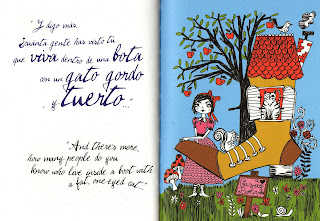 "Y digo más,
¿cuánta gente has visto tú
que viva dentro de una bota
con un gato gordo
y tuerto..."
"And there's more,
how many people do you
know who live inside a boot with
a fat, one-eyed cat..."